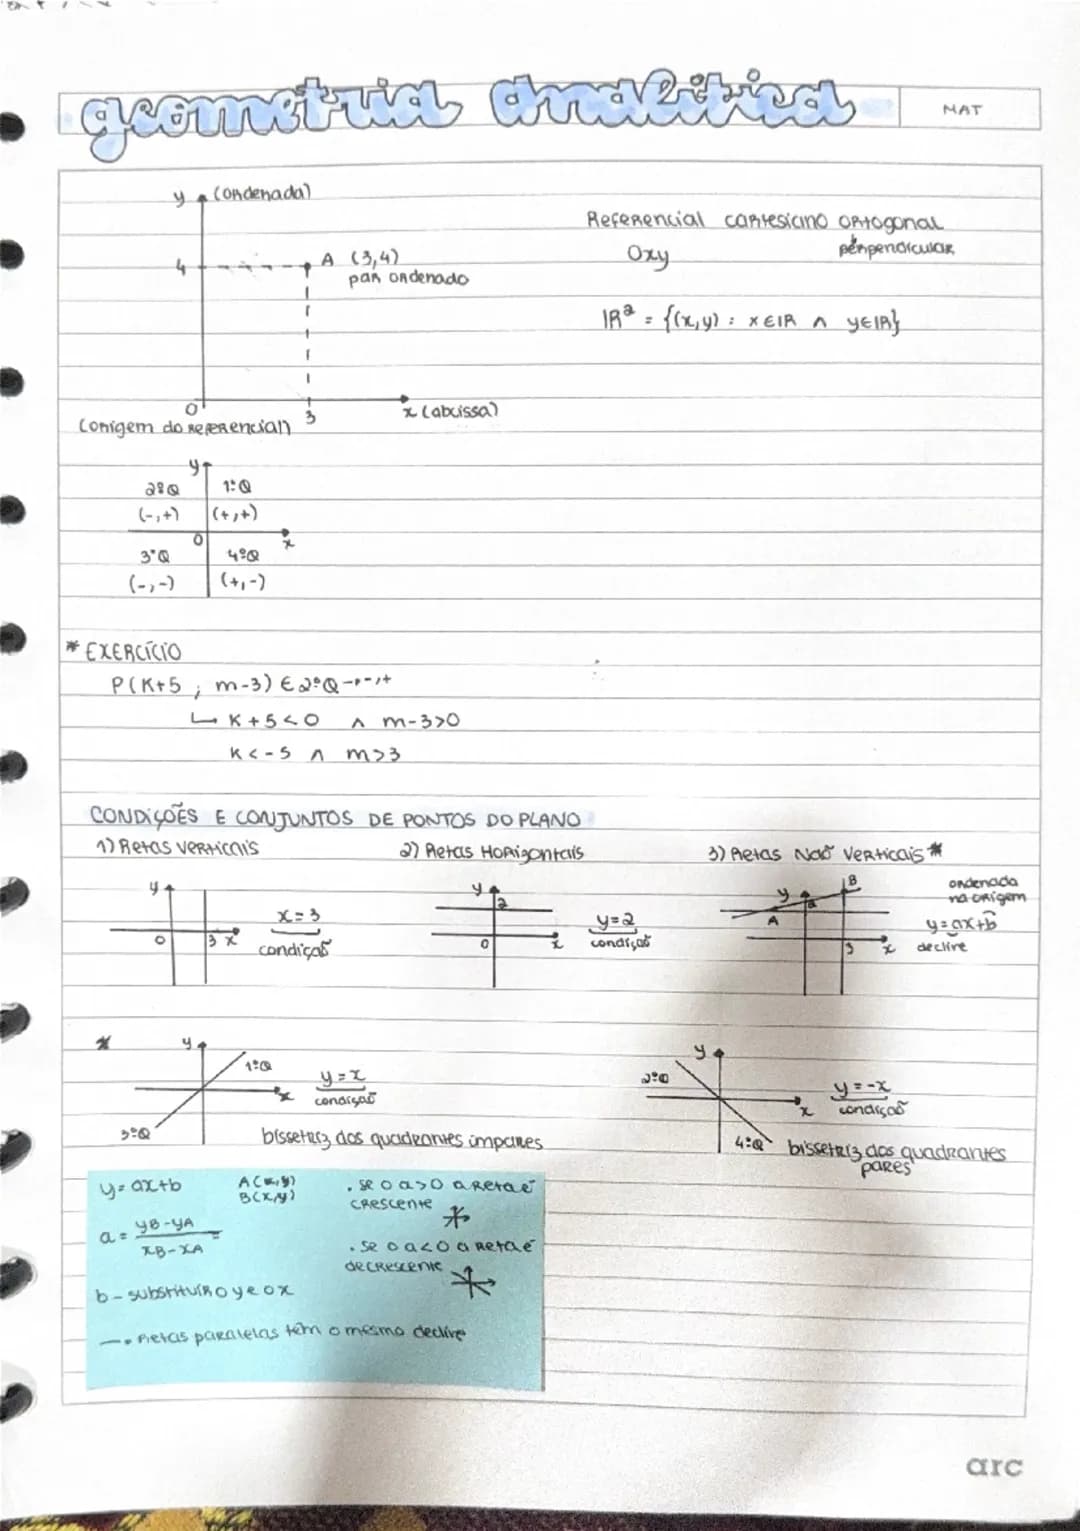 geometria analítica
MAT
y (ordenada)
4
A (3,4)
par ordenado
0
3
x (abcissa)
(origem do referencial)
Referencial cartesiano ortogonal
Oxy
perpendicular
IR² = {(x,y) : x∈IR ∧ y∈IR}
y
2ºQ 1ºQ
(-,+) (+,+)
0 x
3ºQ 4ºQ
(-,-) (+,-)
* EXERCÍCIO
P(K+5 ; m-3) ∈ 2ºQ → -,+
↳ K+5<0 ∧ m-3>0
K<-5 ∧ m>3
CONDIÇÕES E CONJUNTOS DE PONTOS DO PLANO
1) Retas verticais
y
0 3 x
x=3
condição
2) Retas Horizontais
y
2
0 x
y=2
condição
3) Retas Não Verticais *
y
B
A
3 x
ordenada
na origem
y=ax+b
declive
*
y
1ºQ
x
3ºQ
y=x
condição
bissetriz dos quadrantes ímpares
y
2ºQ
x
4ºQ
y=-x
condição
bissetriz dos quadrantes
pares
y=ax+b
A(x,y)
B(x,y)
a = yB-yA / xB-xA =
b - substituir o y e o x
. se o a>0 a reta é
crescente
. se o a<0 a reta é
decrescente
→ Retas paralelas têm o mesmo declive
arc